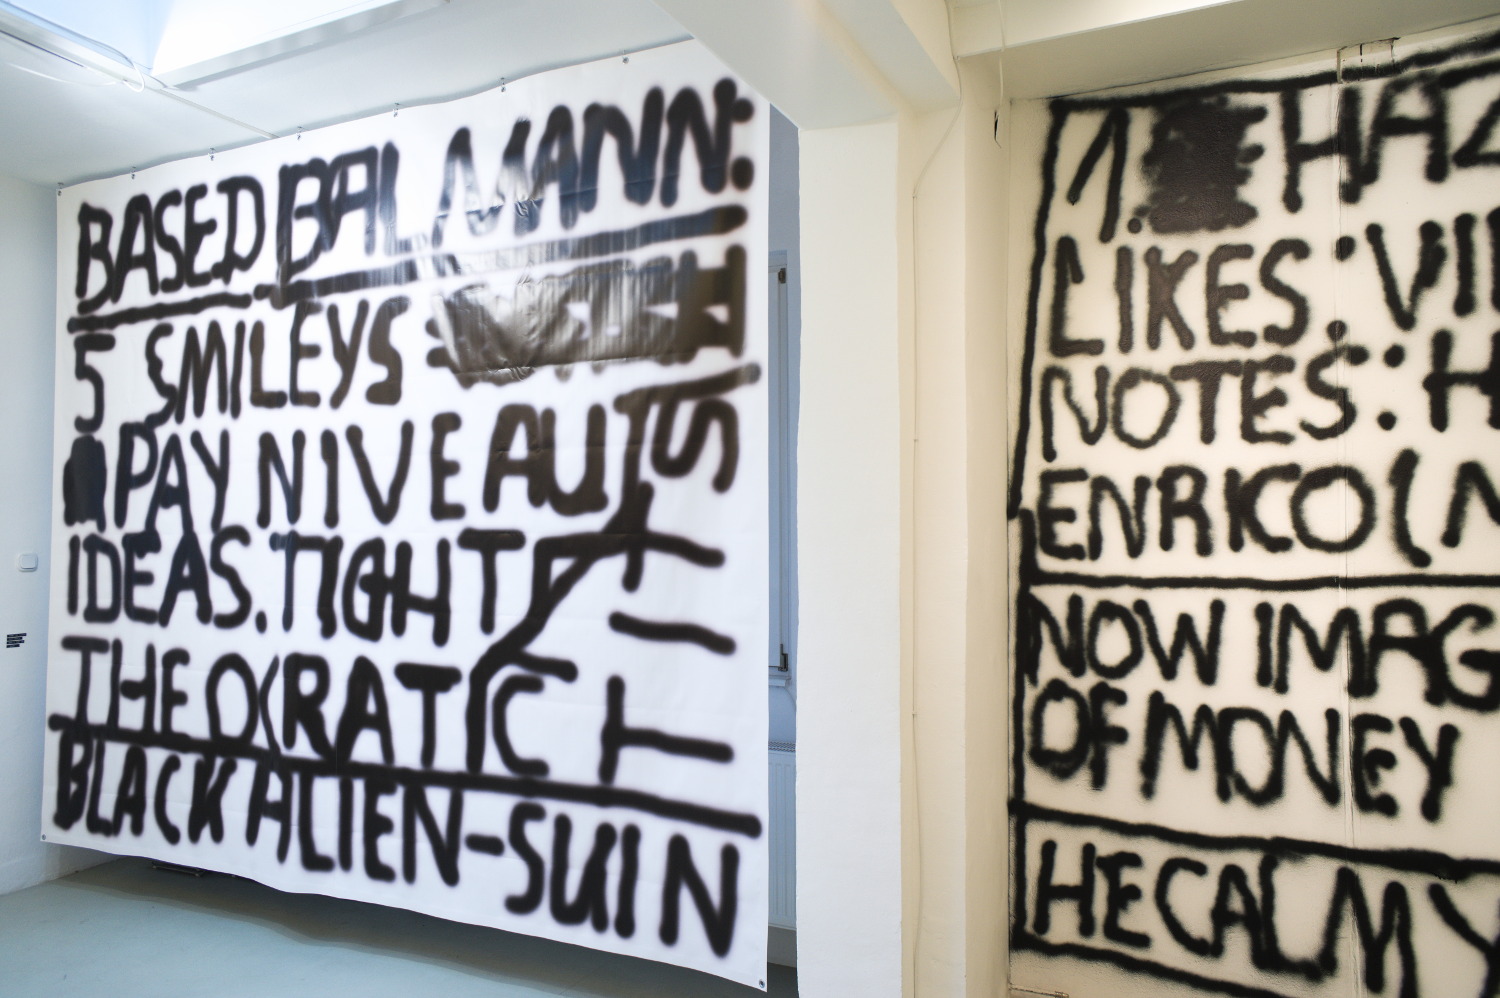 BASED BALMANN:
5 SMILEYS
PAY NIVEAUS
IDEAS. TIGHT
THEOCRATIC
BLACK ALIEN-SUIN
1. HAZ
LIKES: VI
NOTES: H
ENRICO (N
NOW IMAG
OF MONEY
HE CALMY